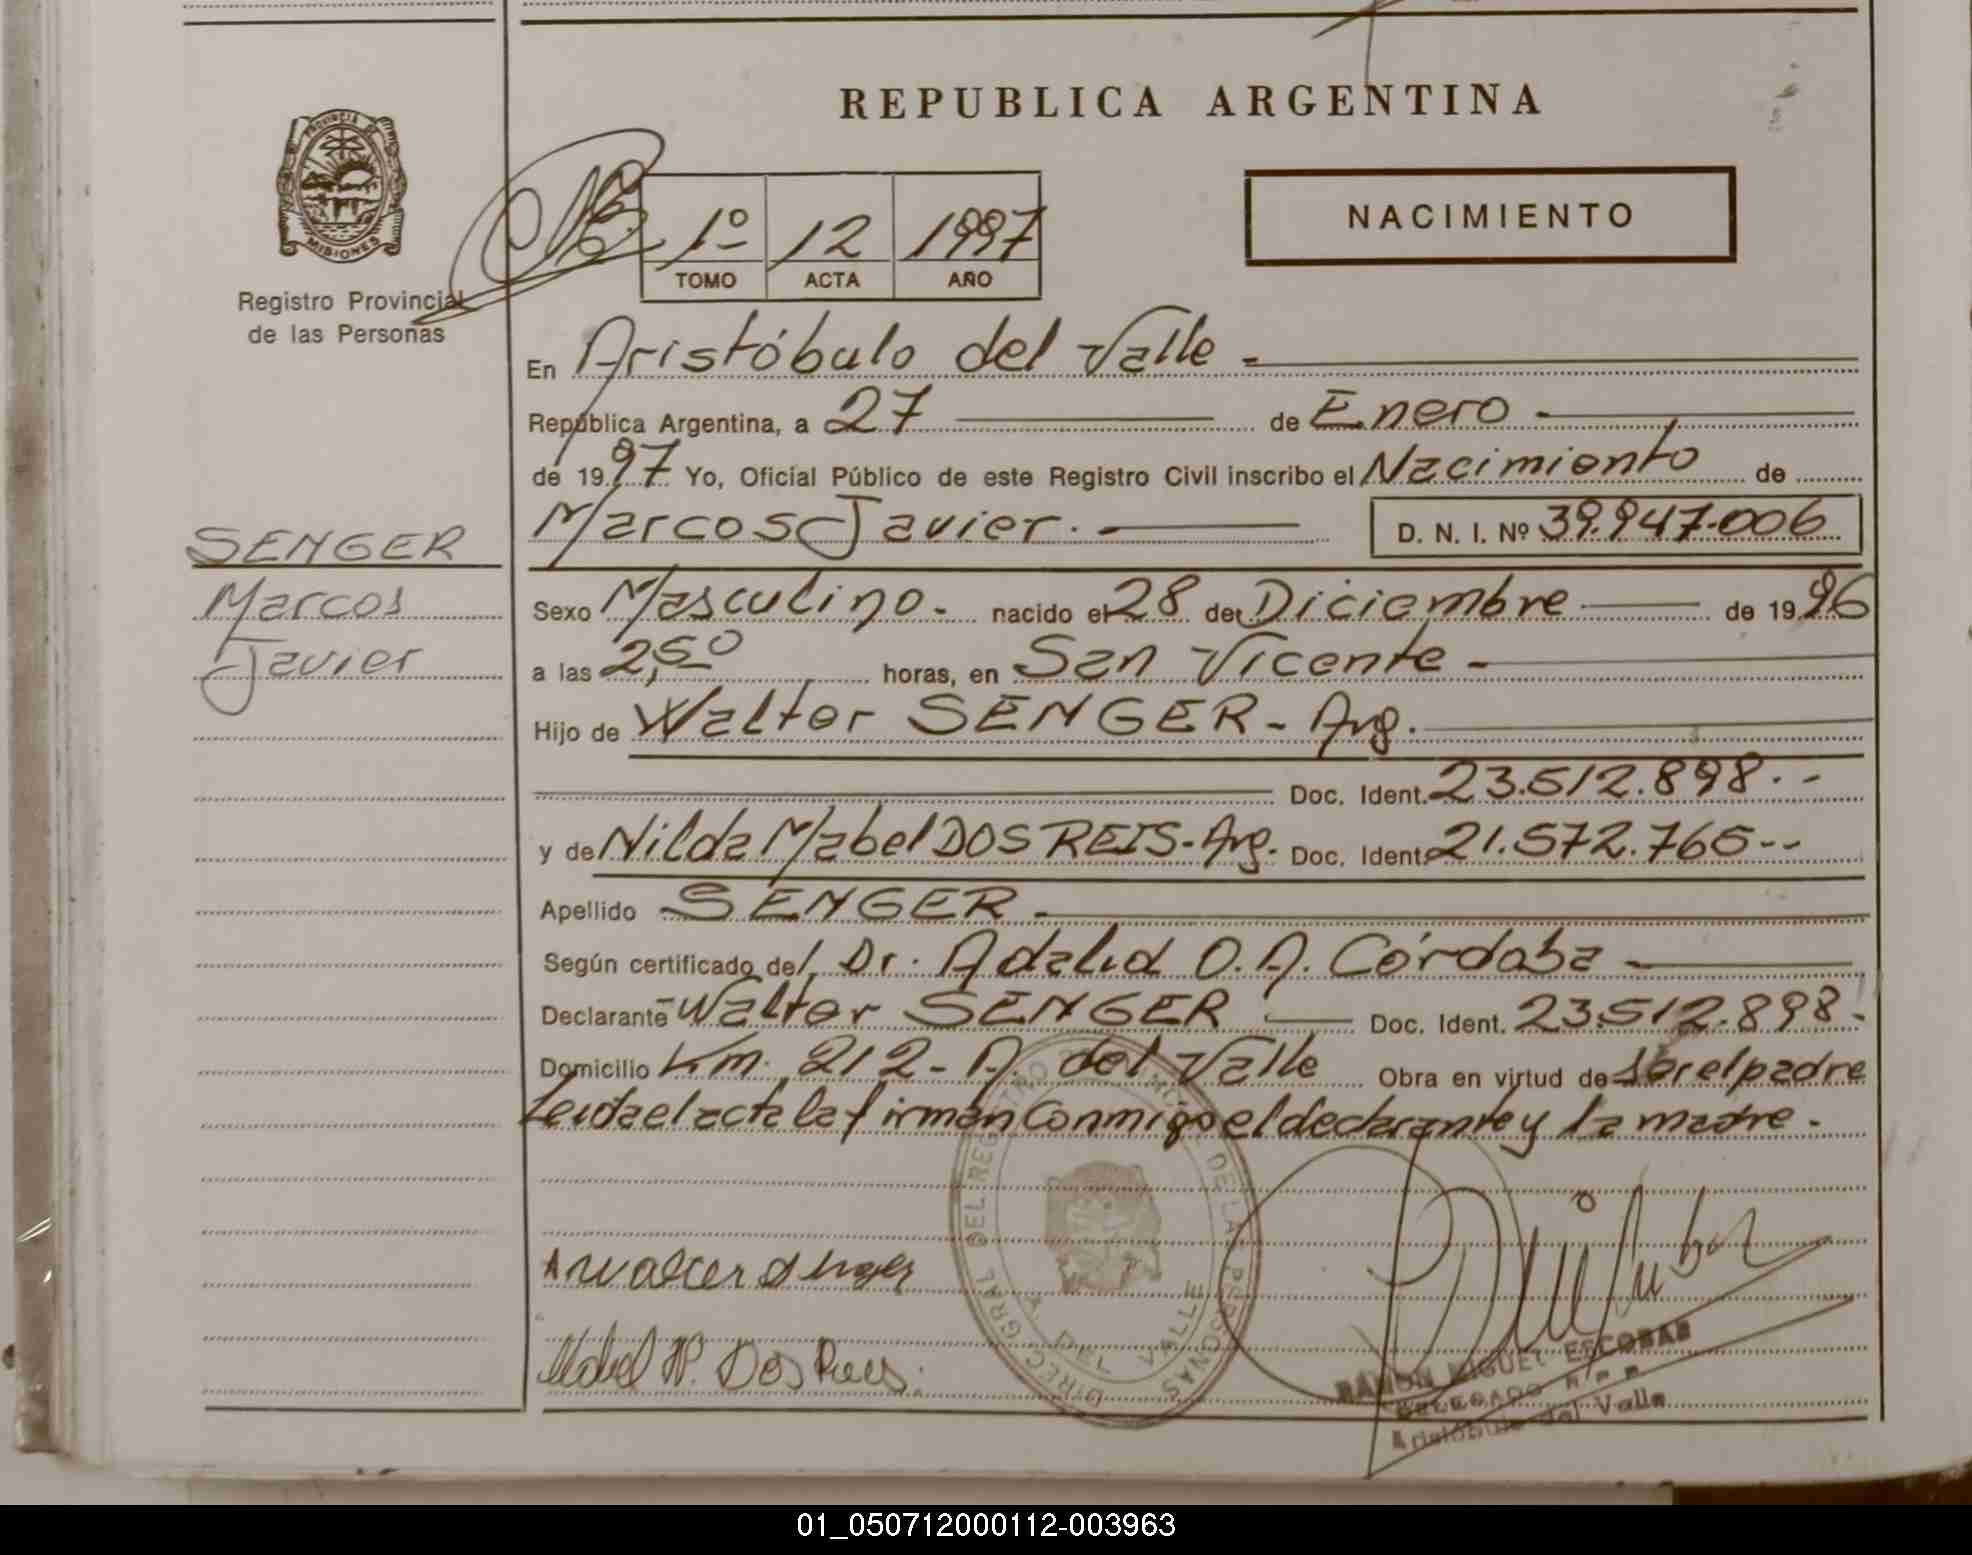 REPUBLICA ARGENTINA
PROVINCIA DE
MISIONES
Registro Provincial
de las Personas
1º 12 1997
TOMO ACTA AÑO
NACIMIENTO
En Aristóbulo del Valle -
República Argentina, a 27 de Enero -
de 1997 Yo, Oficial Público de este Registro Civil inscribo el Nacimiento de
Marcos Javier. - D. N. I. Nº 39.947.006
SENGER
Marcos
Javier
Sexo Masculino - nacido el 28 de Diciembre de 1996
a las 2,50 horas, en San Vicente -
Hijo de Walter SENGER - Arg.
Doc. Ident. 23.512.898.--
y de Nilda Mabel DOS REIS - Arg. Doc. Ident. 21.572.765--
Apellido SENGER -
Según certificado del Dr. Adalid O. A. Córdoba -
Declarante Walter SENGER Doc. Ident. 23.512.898-
Domicilio Km. 212 - A. del Valle Obra en virtud de Ser el padre
Leida el acta la firman Conmigo el declarante y la madre.
DIREC. GRAL DEL REGISTRO PROVINCIAL DE LAS PERSONAS
A. DEL VALLE
Dos Reis
RAMON MIGUEL ESCOBAR
DELEGADO R P P
Aristóbulo del Valle
01_050712000112-003963